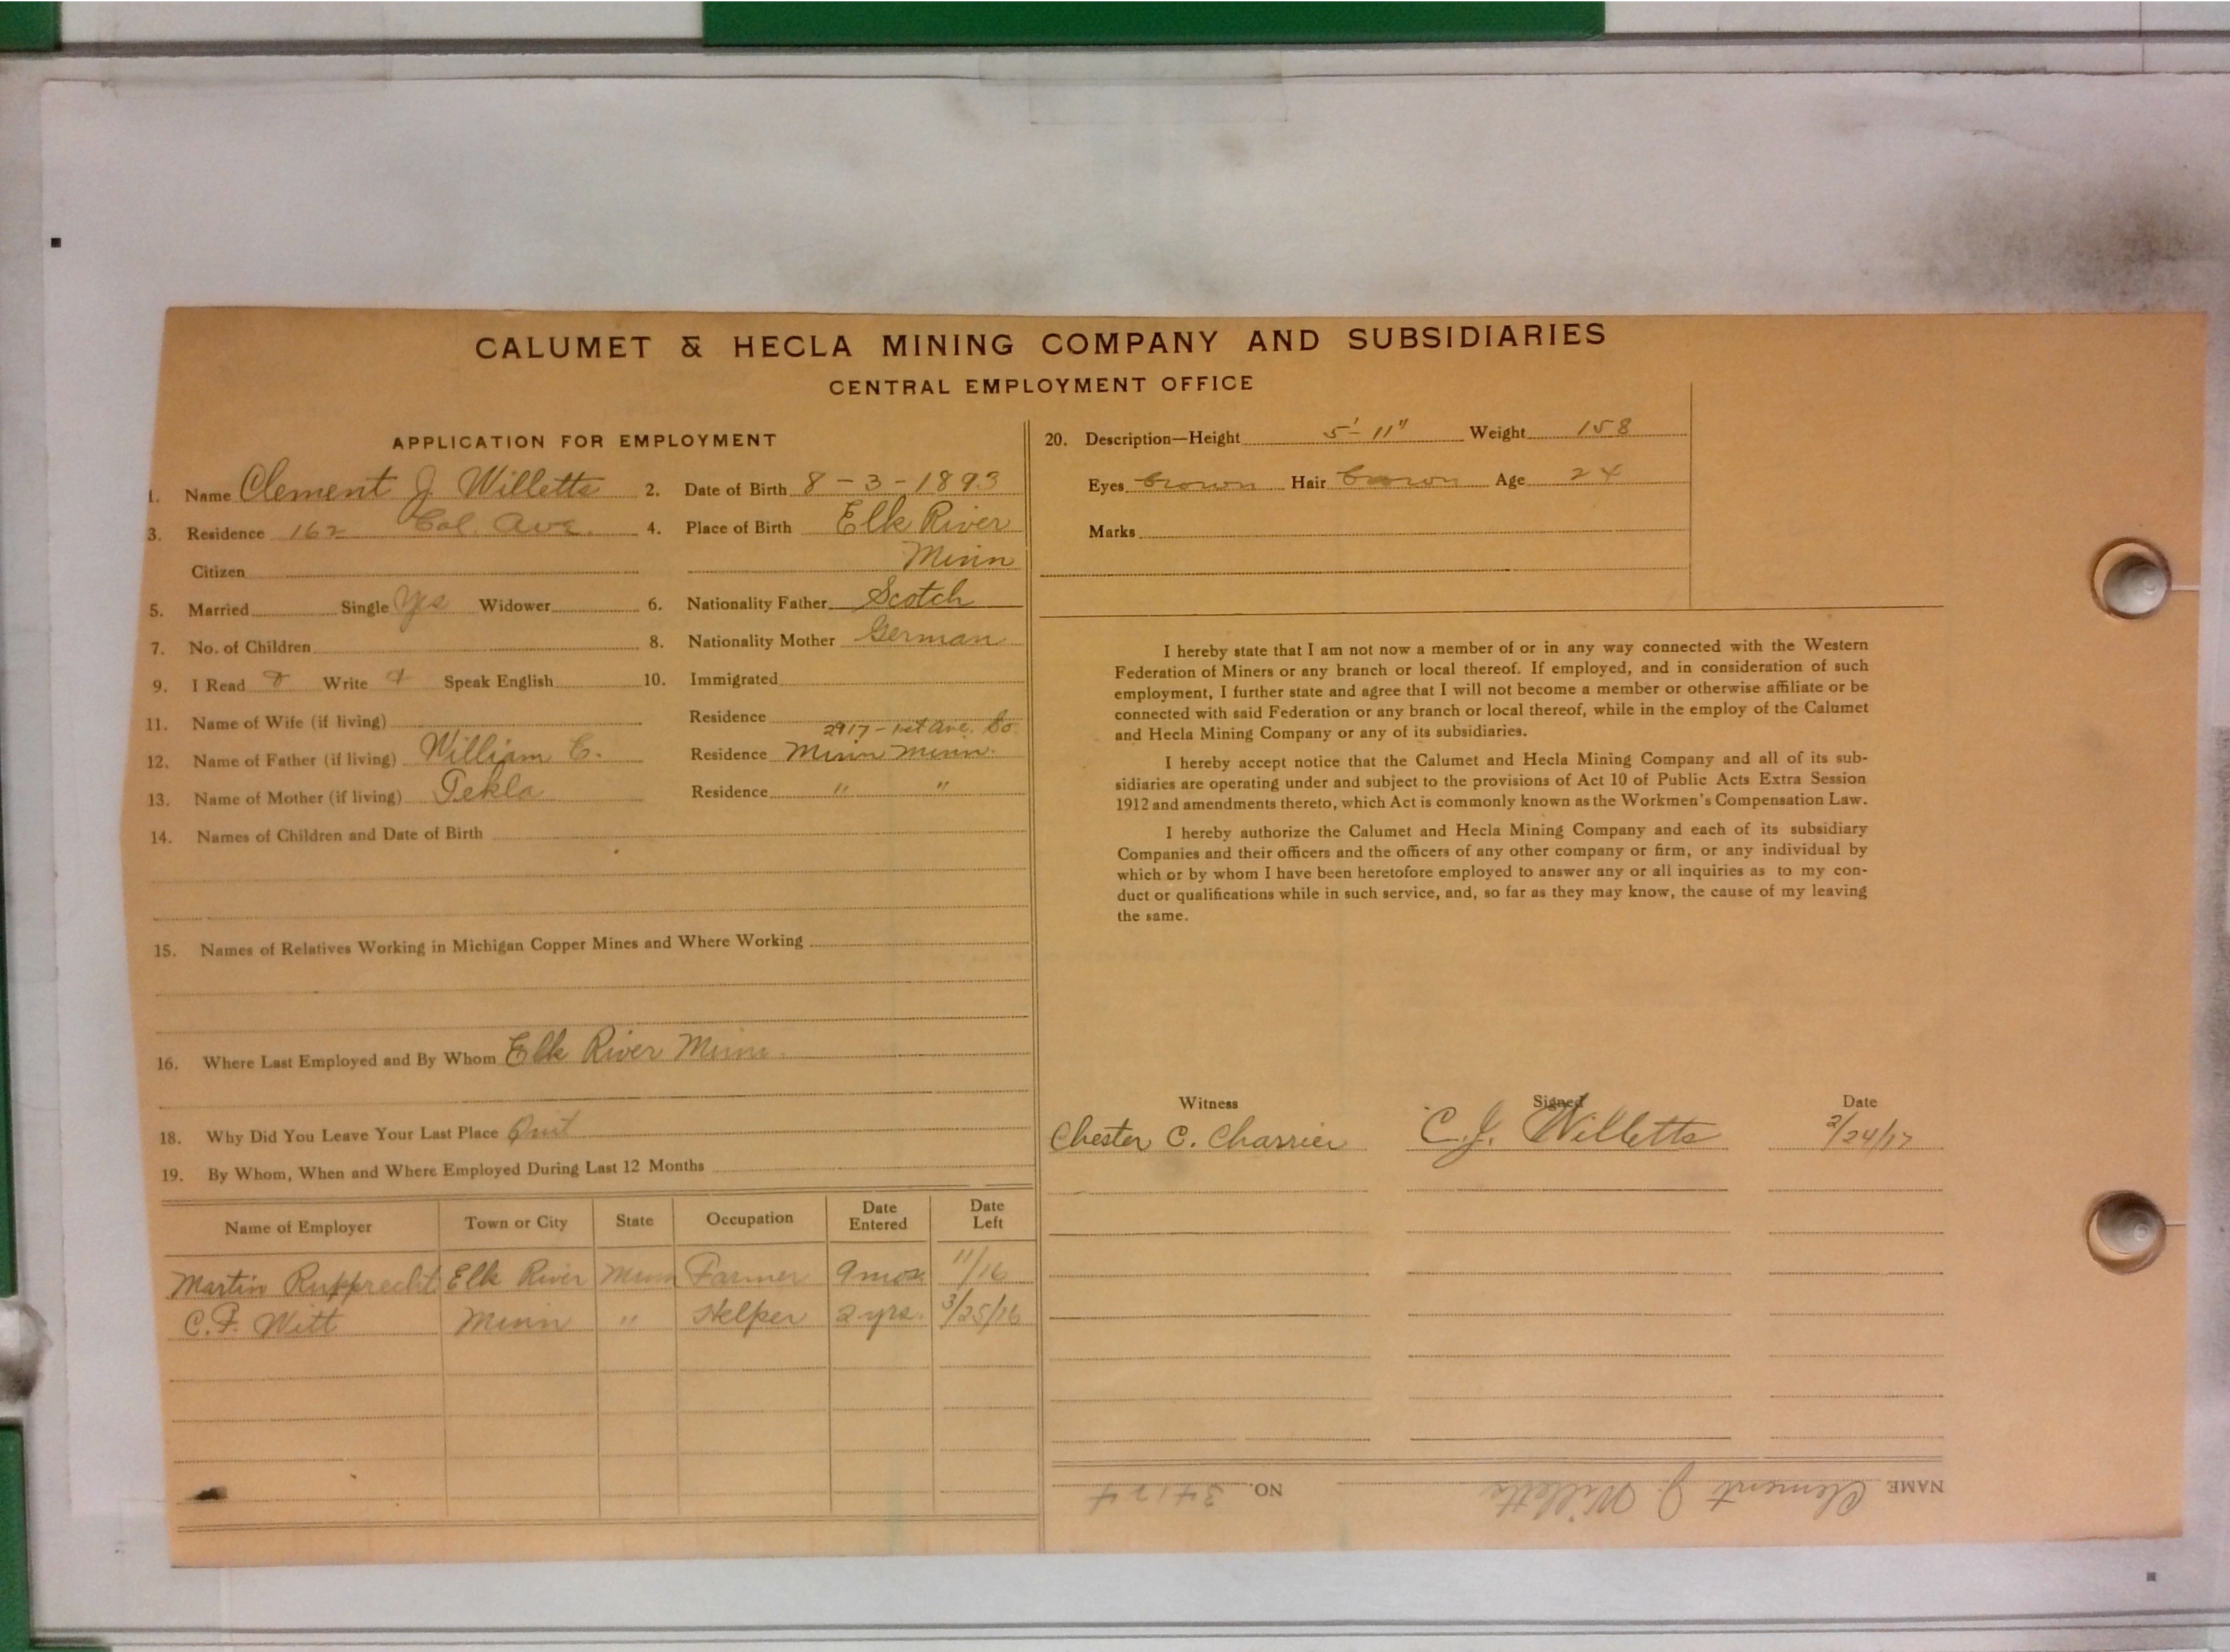 CALUMET & HECLA MINING COMPANY AND SUBSIDIARIES
CENTRAL EMPLOYMENT OFFICE
APPLICATION FOR EMPLOYMENT
1. Name Clement J Willetts 2. Date of Birth 8-3-1893
3. Residence 162 Cal. Ave. 4. Place of Birth Elk River
Citizen Minn
5. Married Single Yes Widower 6. Nationality Father Scotch
7. No. of Children 8. Nationality Mother German
9. I Read Write Speak English 10. Immigrated
11. Name of Wife (if living) Residence
2917-1st Ave. So.
12. Name of Father (if living) William C. Residence Minn Minn.
13. Name of Mother (if living) Tekla Residence " "
14. Names of Children and Date of Birth
15. Names of Relatives Working in Michigan Copper Mines and Where Working
16. Where Last Employed and By Whom Elk River Minn.
18. Why Did You Leave Your Last Place Quit
19. By Whom, When and Where Employed During Last 12 Months
Name of Employer Town or City State Occupation Date Entered Date Left
Martin Rupprecht Elk River Minn Farmer 9 mos. 11/16
C. F. Witt Minn " Helper 2 yrs. 3/25/16
20. Description—Height 5'-11" Weight 158
Eyes brown Hair brown Age 24
Marks
I hereby state that I am not now a member of or in any way connected with the Western
Federation of Miners or any branch or local thereof. If employed, and in consideration of such
employment, I further state and agree that I will not become a member or otherwise affiliate or be
connected with said Federation or any branch or local thereof, while in the employ of the Calumet
and Hecla Mining Company or any of its subsidiaries.
I hereby accept notice that the Calumet and Hecla Mining Company and all of its sub-
sidiaries are operating under and subject to the provisions of Act 10 of Public Acts Extra Session
1912 and amendments thereto, which Act is commonly known as the Workmen's Compensation Law.
I hereby authorize the Calumet and Hecla Mining Company and each of its subsidiary
Companies and their officers and the officers of any other company or firm, or any individual by
which or by whom I have been heretofore employed to answer any or all inquiries as to my con-
duct or qualifications while in such service, and, so far as they may know, the cause of my leaving
the same.
Witness Signed Date
Chester C. Charrier C. J. Willetts 2/24/17
NAME Clement J. Willetts NO. 34124